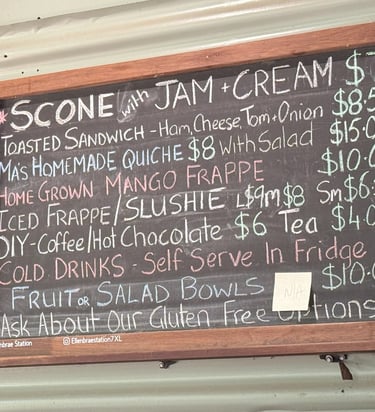 *SCONE with JAM + CREAM $
TOASTED SANDWICH - Ham, Cheese, Tom + Onion $8.5
MA'S HOMEMADE QUICHE $8 with Salad $15.0
HOME GROWN MANGO FRAPPE $10.0
ICED FRAPPE/SLUSHIE L$9 m$8 Sm$6:
DIY-Coffee/Hot Chocolate $6 Tea $4.0
COLD DRINKS - Self Serve In Fridge
FRUIT OR SALAD BOWLS N/A $10.0
Ask About Our Gluten Free Options
nbrae Station Ellenbraestation7XL